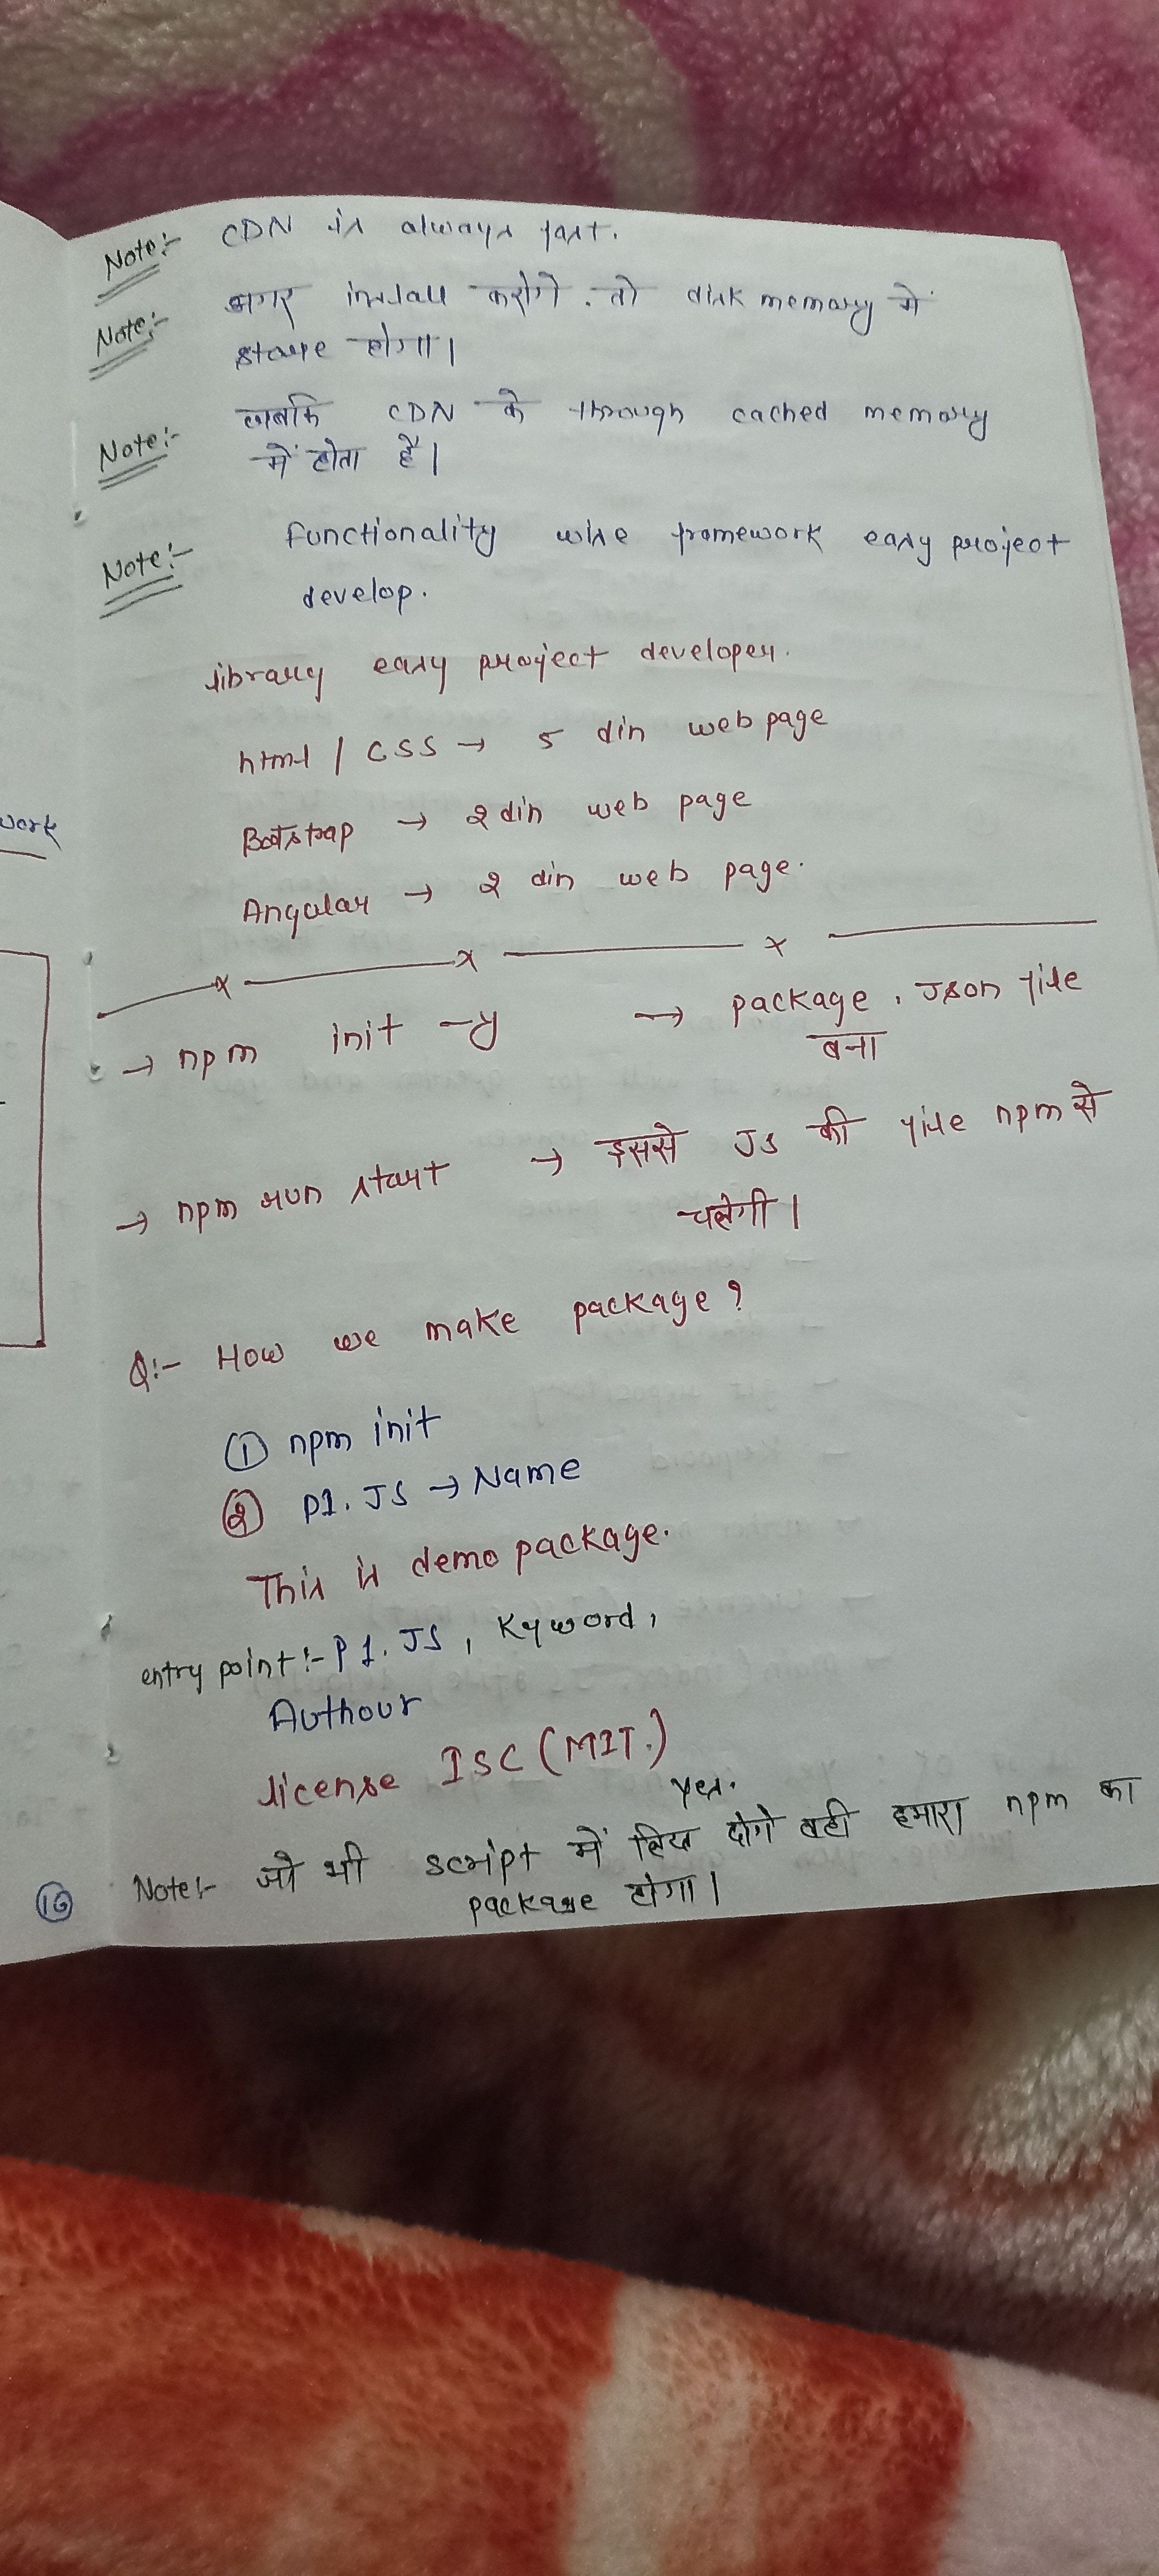 Note:- CDN is always fast.
Note:- अगर install करोगे. तो disk memory में
store होगा।
Note:- जबकि CDN के through cached memory
में होता है।
Note:- Functionality wise framework easy project
develop.
library easy project developer.
html / CSS → 5 din web page
work
Bootstrap → 2 din web page
Angular → 2 din web page.
x x x
→ npm init -y → package . Json file
बना
→ npm run start → इससे JS की file npm से
चलेगी।
Q:- How we make package?
① npm init
② P1. JS → Name
This is demo package.
entry point:- P1. JS, Kyword,
Authour
license ISC (MIT.)
yes.
Note:- जो भी script में लिख दोगे वही हमारा npm का
package होगा।
16